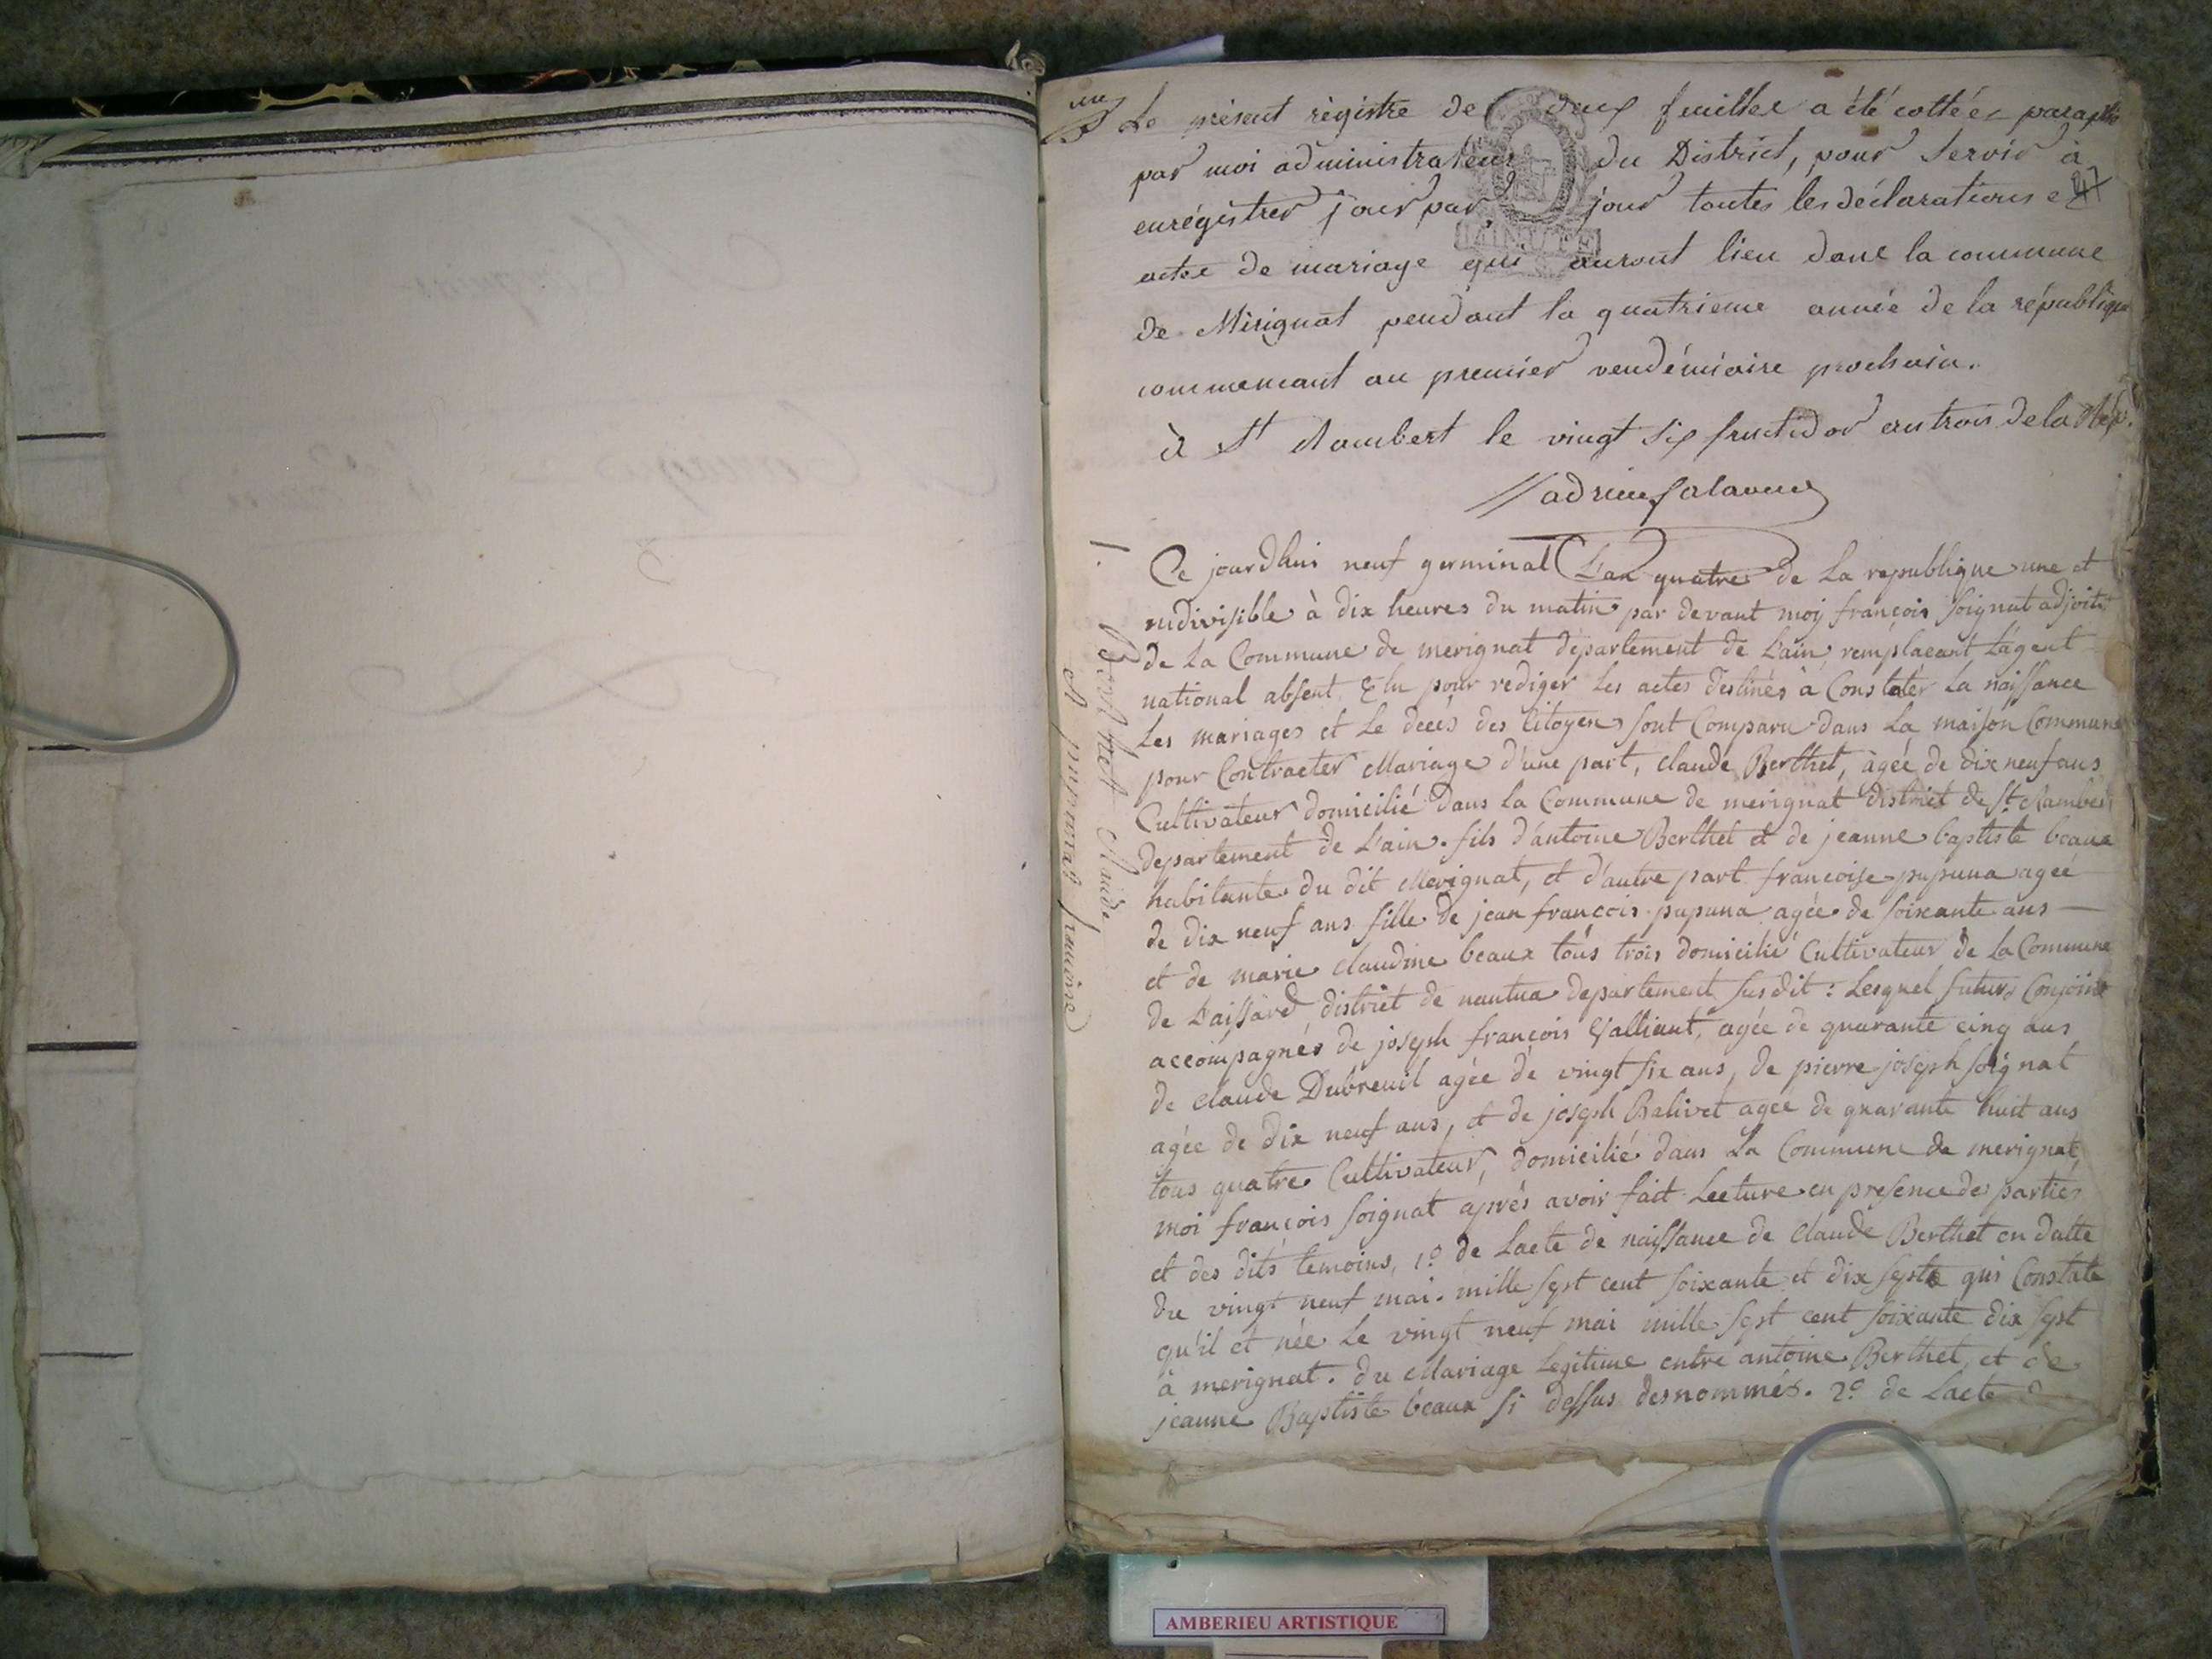 une
Le présent régistre de deux feuilles a été cottée paraphé
par moi administrateur du District, pour servir à
enrégistrer jour par jour toutes les déclarations et
47
MINUTE
actes de mariage qui auront lieu dans la commune
de Mérignat pendant la quatrieme année de la république
commencant au premier vendémiaire prochain.
à St Rambert le vingt six fructidor an trois de la Rép.
1
Berthet Claude
et pupuna francoise
Ce jourdhui neuf germinal L'an quatre de La republique une et
indivisible à dix heures du matin par devant moy françois soignat adjoint
de La Commune de merignat département de L'ain, remplacant Lágent
national absent, Elu pour rediger Les actes destinés à Constatér La naissance
Les mariages et Le decès des Citoyens sont Comparu dans La maison Commune
pour Contracter Mariage d'une part, claude Berthet, àgée de dix neuf ans
Cultivateur domicilié dans La Commune de merignat district de St Rambert
departement de L'ain. fils d'antoine Berthet et de jeanne baptiste beaux
habitante du dit Merignat, et d'autre part francoise pupuna agée
de dix neuf ans fille de jean françois pupuna agée de soixante ans
et de marie claudine beaux tous trois domicilié Cultivateur de La Commune
de L'aissard district de nantua departement susdit : Lesquel futurs Conjoint
accompagnés de joseph françois Galliant, agée de quarante cinq ans
de claude Dubreuil agée de vingt six ans, de pierre joseph soignat
agée de dix neuf ans, et de joseph Balivet agee de quarante huit ans
tous quatre Cultivateur, domicilié dans La Commune de merignat,
moi françois soignat après avoir fait Lecture en presence des parties
et des dits temoins, 1.º de Lacte de naissance de claude Berthet en datte
du vingt neuf mai. mille sept cent soixante et dix septe qui Constate
qu'il et née Le vingt neuf mai mille sept cent soixante dix sept
à merignat. du Mariage Legitime entre antoine Berthet, et de
jeanne Baptiste beaux si dessus desnommés. 2.º de Lacte d
AMBERIEU ARTISTIQUE